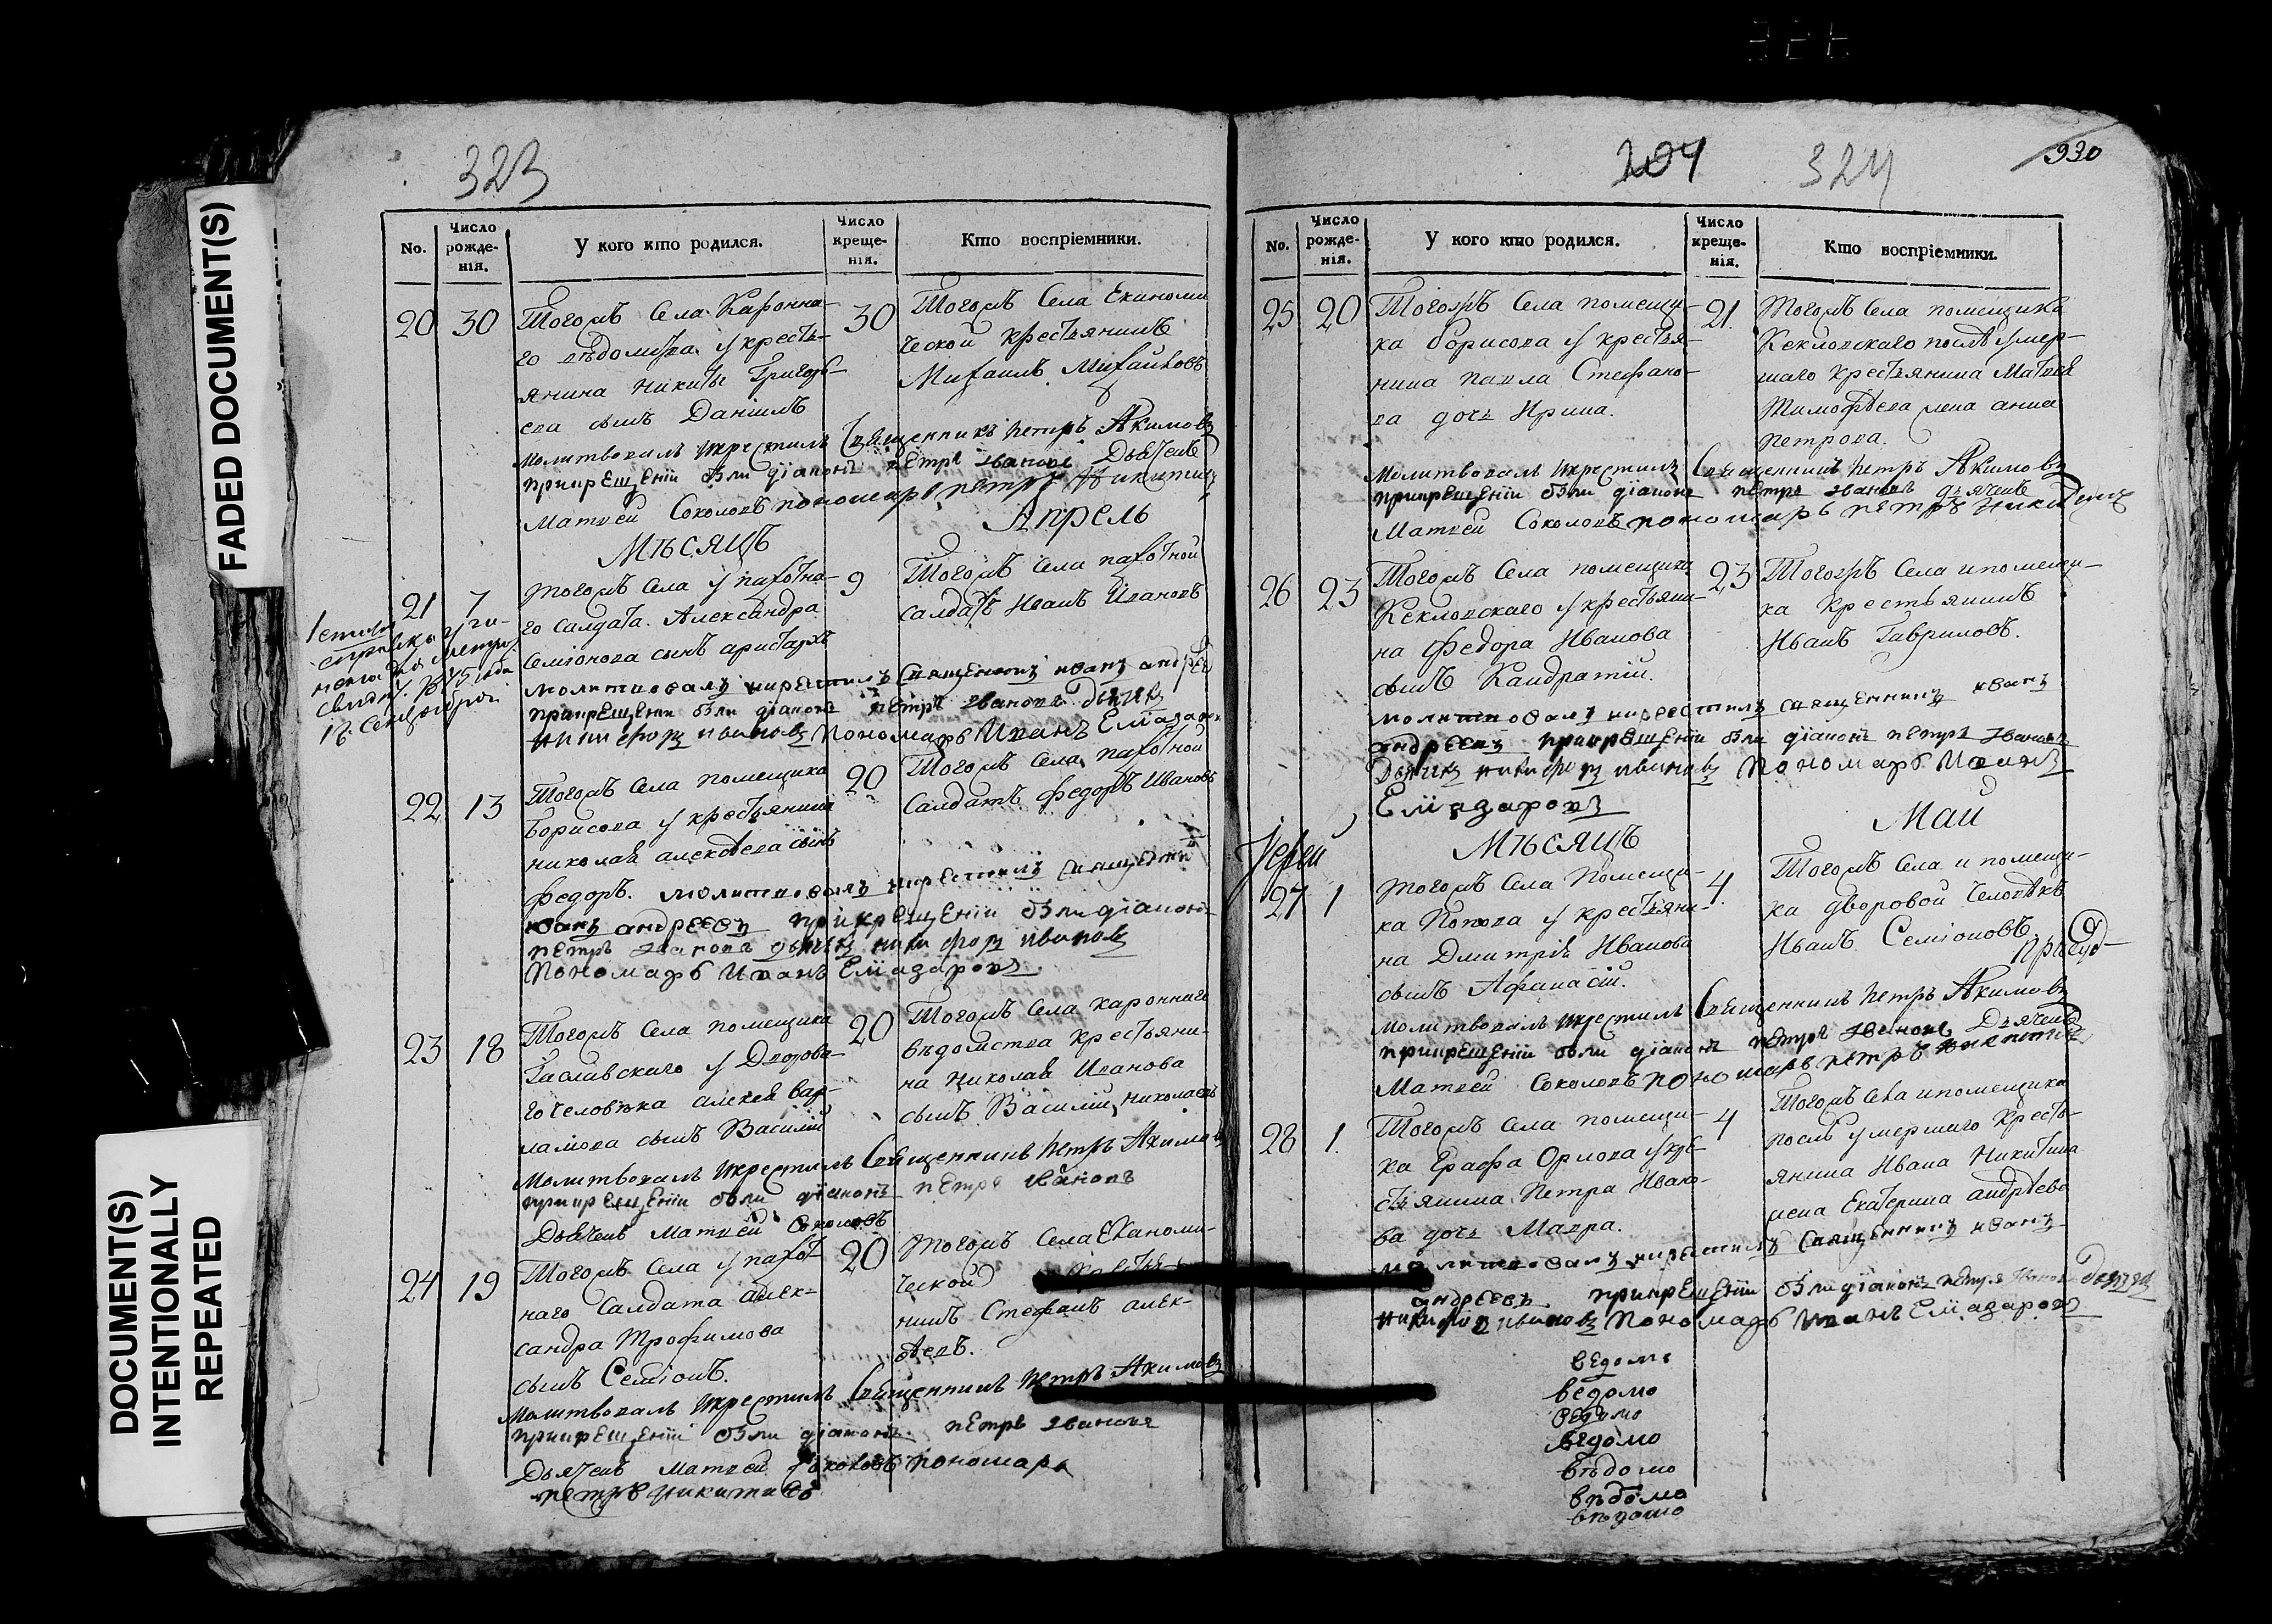 FADED DOCUMENT(S)
DOCUMENT(S)
INTENTIONALLY
REPEATED
323
No.
Число рожденія.
У кого кто родился.
Число крещенія.
Кто воспріемники.
20 30
Тогожъ Села Каронна-
го вѣдомства у кресть-
янина Никиты Григорь-
ева сынъ Даніилъ
30
Тогожъ Села Екиноми
ческой крестьянинъ
Михаилъ Михаиловъ
Молитвовалъ икрестилъ Священникъ Петръ Акимовъ
прикрещеніи были діаконъ Петръ Ивановъ Дьячекъ
Матвей Соколовъ пономарь Петръ Никитинъ
Мѣсяцъ Апрель
21 7
Тогожъ Села у пахотна-
го салдата Александра
Семіонова сынъ аристархъ
9
Тогожъ Села пахотной
салдатъ Иванъ Ивановъ
молитвовалъ икрестилъ Священникъ иванъ андреевъ
прикрещеніи были діаконъ Петръ Ивановъ Дьячекъ
никифоръ ивановъ Пономарь Иванъ Елиазаровъ
22 13
Тогожъ Села помещика
Борисова у крестьянина
николая алексѣева сынъ
федоръ.
20
Тогожъ Села пахотной
Салдатъ федоръ Ивановъ
молитвовалъ икрестилъ Священникъ
иванъ андреевъ прикрещеніи были діаконъ
петръ Ивановъ дьячекъ никифоръ ивановъ
Пономарь Иванъ Елиазаровъ
23 18
Тогожъ Села помещика
Гаславскаго у Дворова-
го человѣка алексея вар-
ламова сынъ Василій
20
Тогожъ Села кароннаго
вѣдомства крестьяни-
на Николая Иванова
сынъ Василий Николаевъ
Молитвовалъ икрестилъ Священникъ Петръ Акимовъ
прикрещеніи были діаконъ петръ Ивановъ
Дьячекъ Матвей Соколовъ
24 19
Тогожъ Села у пахот
наго Салдата алек-
сандра Трофимова
сынъ Семіонъ.
20
Тогожъ Села Економи-
ческой
нинъ Стефанъ алек-
сѣевъ.
Молитвовалъ икрестилъ Священникъ Петръ Акимовъ
прикрещеніи были діаконъ петръ Ивановъ
Дьячекъ Матвей Соколовъ пономарь
петръ Никитинъ
204
324
930
No.
Число рожденія.
У кого кто родился.
Число крещенія.
Кто воспріемники.
25 20
Тогожъ Села помещи-
ка Борисова у крестья-
нина павла Стефано-
ва дочь Ирина.
21.
Тогожъ Села помещика
Кекловскаго послѣ умер-
шаго крестьянина Матвея
Тимофѣева жена анна
петрова.
Молитвовалъ икрестилъ Священникъ Петръ Акимовъ
прикрещеніи были діаконъ Петръ Ивановъ дьячекъ
Матвей Соколовъ пономарь петръ Никитинъ
26 23
Тогожъ Села помещика
Кекловскаго у крестьяни-
на Федора Иванова
сынъ Кандратій.
23
Тогожъ Села ипомещи-
ка крестьянинъ
Иванъ Гавриловъ.
молитвовалъ икрестилъ священникъ иванъ
андреевъ прикрещеніи были діаконъ петръ Ивановъ
Дьячекъ никифоръ ивановъ Пономарь Иванъ
Елиазаровъ
Мѣсяцъ Май
Іерей
27 1
Тогожъ Села Помещи-
ка Попова у крестьяни-
на Дмитрія Иванова
сынъ Афанасій.
4.
Тогожъ Села и помещи-
ка дворовой человѣкъ
Иванъ Семіоновъ.
Молитвовалъ икрестилъ Священникъ Петръ Акимовъ
прикрещеніи были діаконъ Петръ Ивановъ Дьячекъ
Матвей Соколовъ пономарь петръ никитинъ
28 1.
Тогожъ Села помещи-
ка Графа Орлова у кре-
стьянина Петра Ивано-
ва дочь Мавра.
4
Тогожъ Села ипомещика
послѣ умершаго кресть-
янина Ивана Никитина
жена Екатерина андрѣева
молитвовалъ икрестилъ Священникъ иванъ
андреевъ прикрещеніи были діаконъ петръ Ивановъ Дьячекъ
никифоръ ивановъ Пономарь Иванъ Елиазаровъ
ведомо
ведомо
ведомо
ведомо
вѣдомо
вѣдомо
вѣдомо